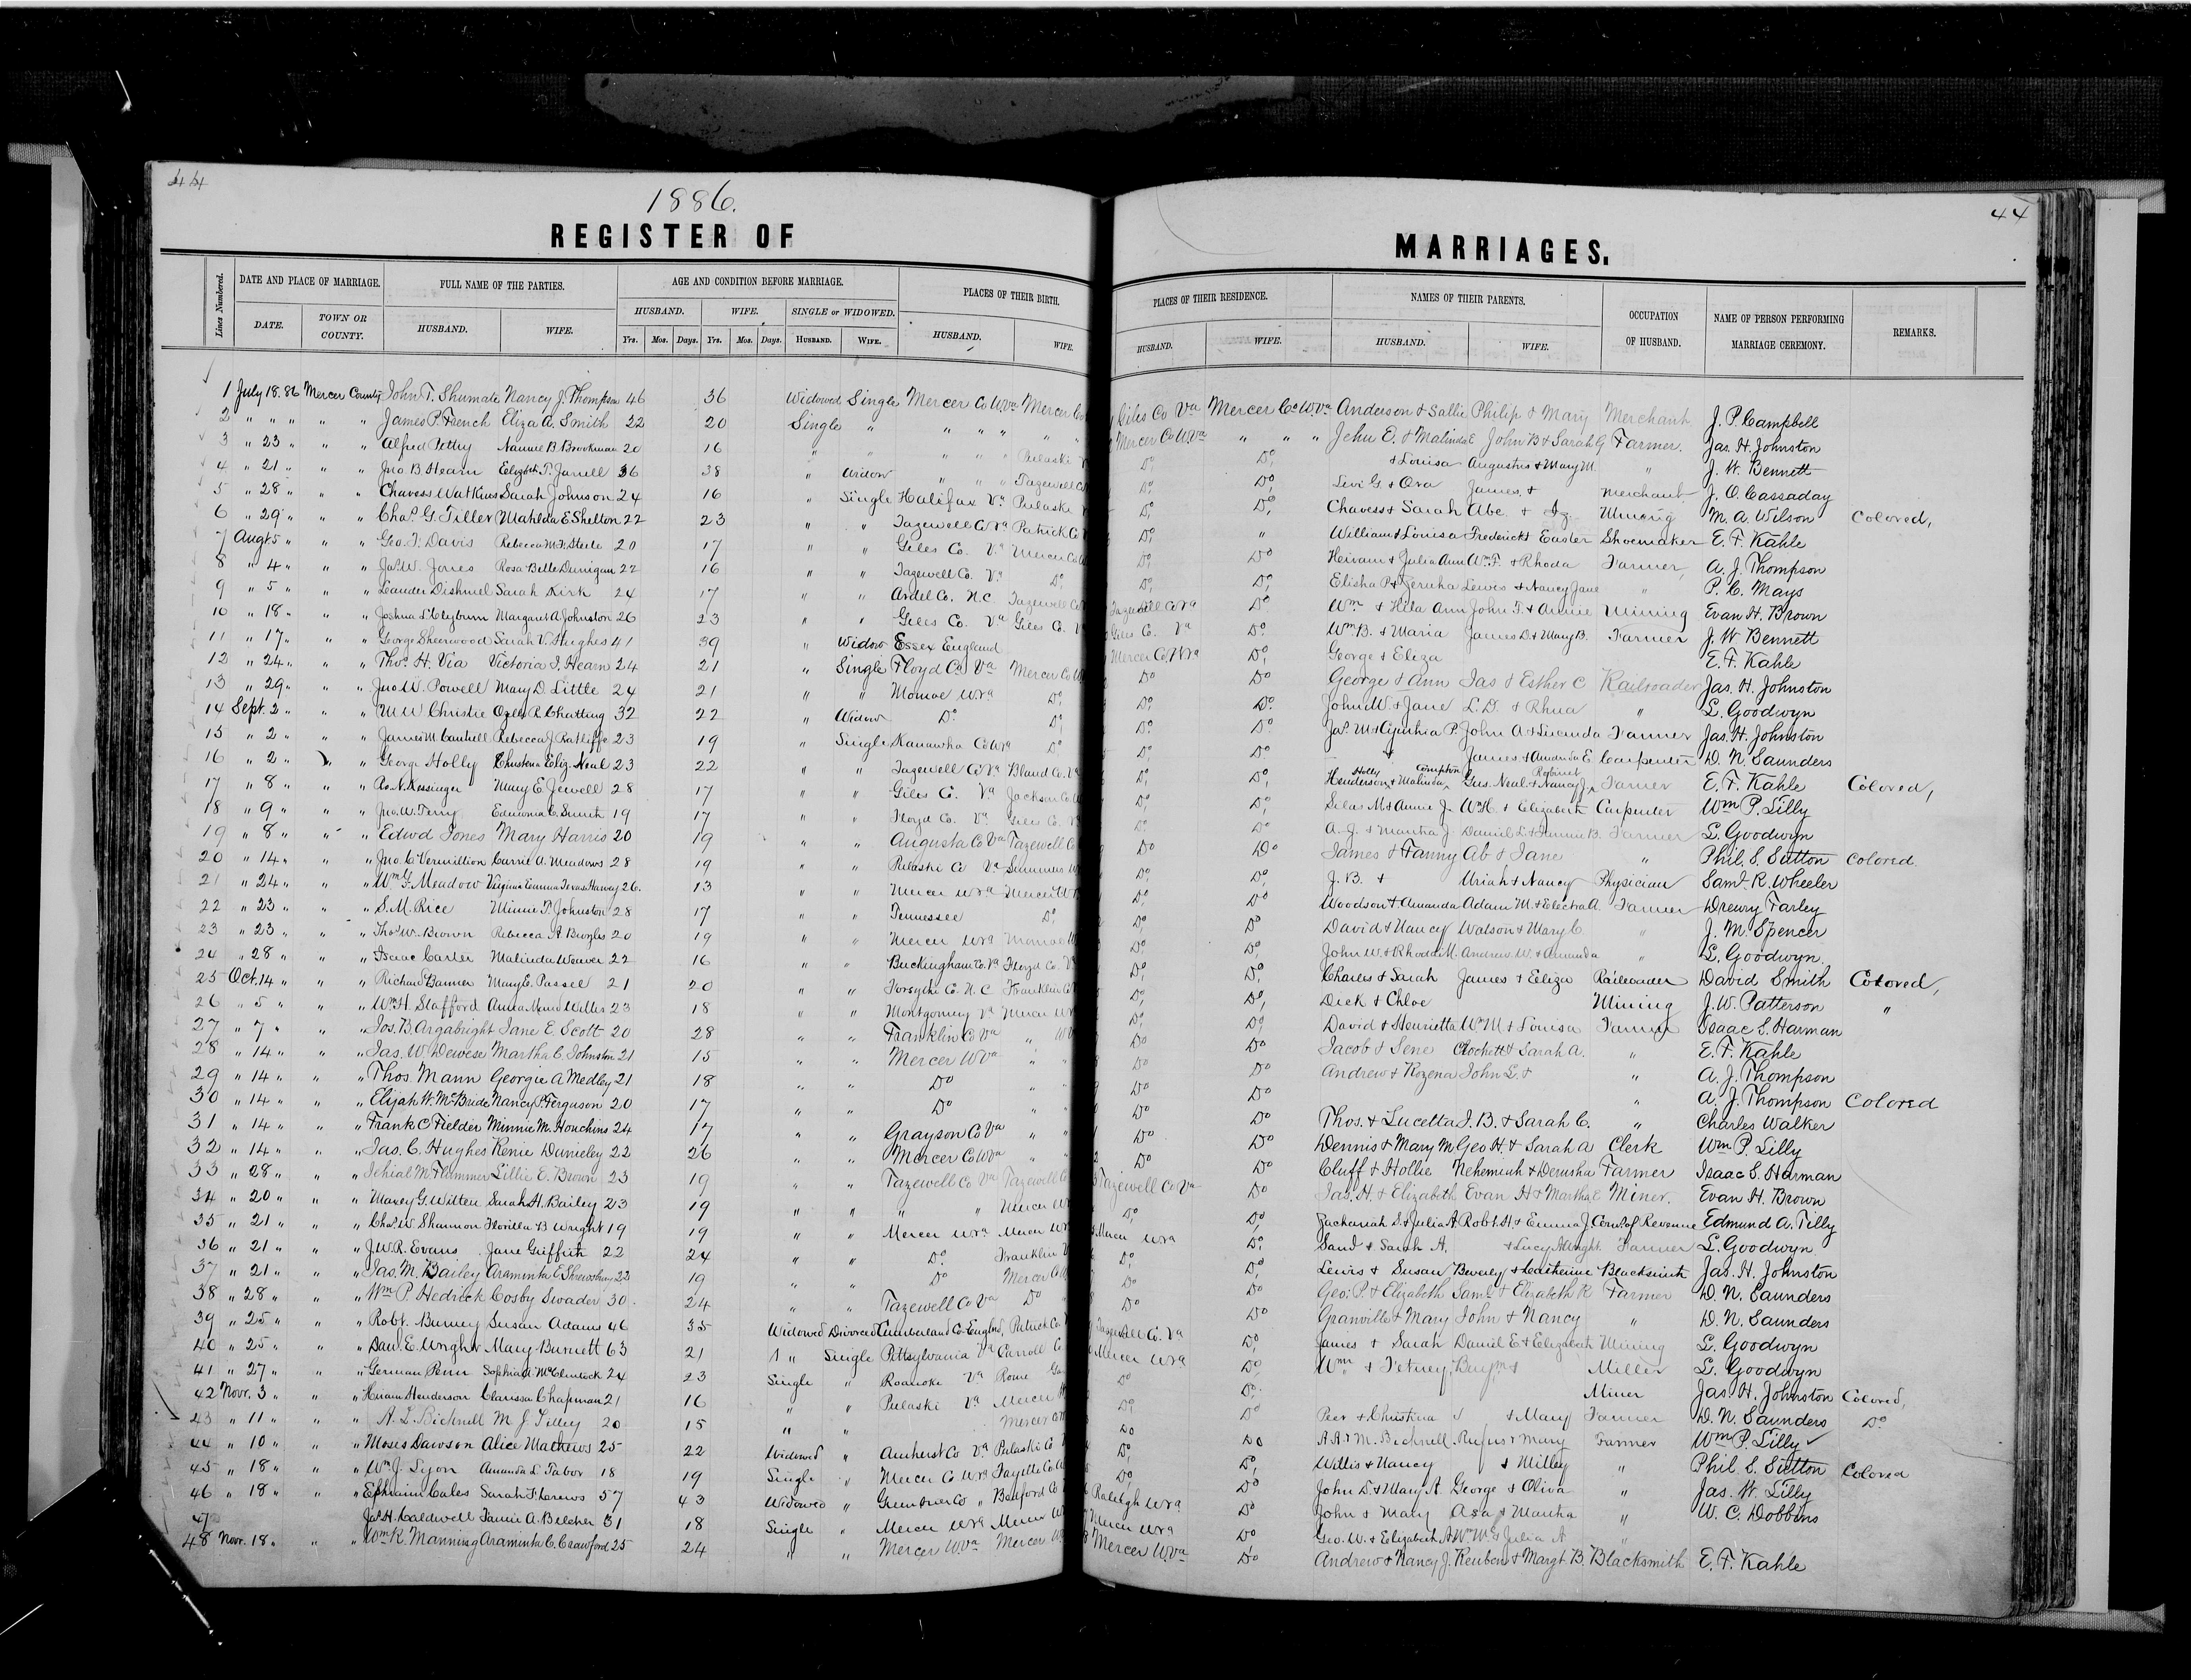 44
1886.
REGISTER OF
MARRIAGES.
44
Lines Numbered.
DATE AND PLACE OF MARRIAGE. FULL NAME OF THE PARTIES. AGE AND CONDITION BEFORE MARRIAGE. PLACES OF THEIR BIRTH. PLACES OF THEIR RESIDENCE. NAMES OF THEIR PARENTS. OCCUPATION OF HUSBAND. NAME OF PERSON PERFORMING MARRIAGE CEREMONY. REMARKS.
DATE. TOWN OR COUNTY. HUSBAND. WIFE. HUSBAND. WIFE. SINGLE or WIDOWED. HUSBAND. WIFE. HUSBAND. WIFE. HUSBAND. WIFE.
Yrs. Mos. Days. Yrs. Mos. Days. HUSBAND. WIFE.
1 July 18. 86 Mercer County John T. Shumate Nancy J. Thompson 46 36 Widowed Single Mercer Co W Va Mercer Co Giles Co Va Mercer Co W. Va Anderson & Sallie Philip & Mary Merchant J. P. Campbell
2 " " " " " James P. French Eliza A. Smith 22 20 Single " " " " " " Mercer Co W Va " " " Jehu E. & Malinda E John B & Sarah G Farmer. Jas. H. Johnston
3 " 23 " " " Alfred Petty Nannie B. Brookman 20 16 " " " " " Pulaski Do Do & Louisa Augustus & Mary M. " J. W. Bennett
4 " 21 " " " Jno B. Hearn Elizabeth T. Janell 36 38 " Widow " " " Tazewell Co Do Do Levi G. & Ora James & Merchant J. O. Cassaday
5 " 28 " " " Chavess Watkins Sarah Johnson 24 16 " Single Halifax Va Pulaski Do Do Chavess & Sarah Abe & Mining M. A. Wilson Colored,
6 " 29 " " " Chas. G. Tiller Mahlda E Shelton 22 23 " " Tazewell Co Va Patrick Co Do " William & Louisa Frederick & Easter Shoemaker E. F. Kahle
7 Augt 5 " " " Geo. T. Davis Rebecca M. F. Steele 20 17 " " Giles Co. Va Mercer Co Do Do Hiram & Julia Ann Wm. F. & Rhoda Farmer, A. J. Thompson
8 " 4 " " " Jas. W. Jones Rosa Belle Dunigan 22 16 " " Tazewell Co. Va Do Do Do Elisha P & Jeruha Lewis & Nancy Jane " P. C. Mays
9 " 5 " " " Leander Dishmel Sarah Kirk 24 17 " " N.C. Tazewell Co Tazewell Co Va Do Wm & Hila Ann John T. & Annie Mining Evan H. Brown
10 " 18 " " " Joshua L. Clyburn Margaret A Johnston 26 23 " " Giles Co. Va Giles Co. Giles Co. Va Do Wm B. & Maria James D. & Mary B. Farmer J. W. Bennett
11 " 17 " " " George Sheerwood Sarah V. Hughes 41 39 " Widow Essex England Mercer Co W Va Do George & Eliza E. F. Kahle
12 " 24 " " " Thos. H. Via Victoria I. Hearn 24 21 " Single Floyd Co. Va Mercer Co Do Do George & Ann Jas & Esther C Railroader Jas. H. Johnston
13 " 29 " " " Jno. W. Powell Mary D. Little 24 21 " " Monroe W Va Do Do Do John W. & Jane L. D. & Rhua " L. Goodwyn
14 Sept. 2 " " " M W Christie R. Chatting 32 22 " Widow Do Do Do Do Jas. M & Cynthia P. John A & Lucinda Farmer Jas. H. Johnston
15 " 2 " " " James M. Cantrell Rebecca J Ratliffe 23 19 " Single Kanawha Co W Va Do Do Do & James & Amanda E Carpenter D. N. Saunders
16 " 2 " " George Holly Christena Eliz. Neal 23 22 " " Tazewell Co Va Bland Co. Va Do Do Henderson Holly & Malinda Compton Gus. Neal & Nancy J. Farmer E. F. Kahle Colored,
17 " 8 " " " Ro. N. Kessinger Mary E. Jewell 28 17 " " Giles C. Va Jackson Co Do Do Silas M & Annie J. Wm H. & Elizabeth Carpenter Wm P. Lilly
18 " 9 " " " Jno. W. Terry Edmonia C. Smith 19 17 " " Floyd Co. Va Giles Co. Do Do A. J. & Martha J. Daniel L. & Fannie B. Farmer L. Goodwyn
19 " 8 " " " Edwd Jones Mary Harris 20 19 " " Augusta Co Va Tazewell Co Do Do James & Fanny Ab & Jane " Phil. S. Sutton Colored
20 " 14 " " " Jno. C. Vermillion Carrie A. Meadows 28 19 " " Pulaski Co Va Summers Do Do J. B. & Uriah & Nancy Physician Saml. R. Wheeler
21 " 24 " " " Wm. G. Meadow Virginia Emma Texas Harvey 26. 13 " " Mercer W Va Mercer Do Do Woodson & Amanda Adam M. & Electra A. Farmer Drewry Farley
22 " 23 " " " S. M. Rice Minnie F. Johnston 28 17 " " Tennessee Do Do Do David & Nancy Watson & Mary C. " J. M. Spencer
23 " 23 " " " Thos. W. Brown Rebecca A Burgles 20 19 " " Mercer W Va Monroe Do Do John W. & Rhoda M. Andrew W. & Amanda " L. Goodwyn.
24 " 28 " " " Isaac Carter Malinda Weaver 22 16 " " Buckingham Co. Va Floyd Co. Do Do Charles & Sarah James & Eliza Railroader David Smith Colored,
25 Oct. 14 " " " Richard Banner Mary E. Passel 21 20 " " Forsythe Co. N. C Franklin Co Do Do Dick & Chloe Mining J. W. Patterson "
26 " 5 " " " Wm H. Stafford Anna Maud Willis 23 18 " " Montgomery Va Mercer Do Do David & Henrietta Wm M & Louisa Farmer Isaac S. Harman
27 " 7 " " " Jos. B. Argabright Jane E Scott 20 28 " " Franklin Co Va " Do Do Jacob & Sene Crochett & Sarah A. " E. F. Kahle
28 " 14 " " " Jas. W. Dewese Martha C. Johnston 21 15 " " Mercer W Va " " Do Do Andrew & Rozena John L & " A. J. Thompson
29 " 14 " " " Thos. Mann Georgie A Medley 21 18 " " Do " " Do Do " A. J. Thompson Colored
30 " 14 " " " Elijah W. McBride Nancy P. Ferguson 20 17 " " Do " Do Do Thos. & Lucetta J. B. & Sarah C. " Charles Walker
31 " 14 " " " Frank C Fielder Minnie M. Houchins 24 17 " " Grayson Co Va " " Do Do Dennis & Mary M Geo. H. & Sarah A Clerk Wm. P. Lilly
32 " 14 " " " Jas. C. Hughes Renie Danieley 22 26 " " Mercer Co W Va " " Do Do Cluff & Hollie Nehemiah & Derusha Farmer Isaac S. Harman
33 " 28 " " " Jehial M. Flummer Lillie E. Brown 23 19 " " Tazewell Co Va Tazewell Co Tazewell Co Va Do Jas. H. & Elizabeth Evan H & Martha E Miner. Evan H. Brown
34 " 20 " " " Maxey G. Witten Sarah H. Bailey 23 19 " " " " Mercer Do Do Zachariah S. & Julia A Robt. H. & Emma J. Com. of Revenue Edmund A. Tilly
35 " 21 " " " Chas. W. Shannon Florilla B Wright 19 19 " " Mercer W Va Mercer Mercer W Va Do Sand & Sarah A. & Lucy A Wright Farmer L. Goodwyn.
36 " 21 " " " J. W. R. Evans Jane Griffith 22 24 " " Do Franklin Do Do Lewis & Susan Beverly & Catherine Blacksmith Jas. H. Johnston
37 " 21 " " " Jas. M. Bailey Araminta E Shrewsbury 22 19 " " Do Mercer Do Do Geo: P. & Elizabeth Saml & Elizabeth R Farmer D. N. Saunders
38 " 28 " " " Wm P. Hedrick Cosby Swader 30. 24 " " Tazewell Co Va Do Do Do Granville & Mary John & Nancy " D. N. Saunders
39 " 25 " " " Robt. Burney Susan Adams 46 35 Widowed Divorced Cumberland Co. England, Patrick Co. Tazewell Co. Va Do James & Sarah Daniel E & Elizabeth Mining L. Goodwyn
40 " 25 " " " Dav. E. Wright Mary Burnett 63 21 " Single Pittsylvania Va Carroll Co Mercer W Va Do Wm & Benj. & Miller L. Goodwyn
41 " 27 " " " German Penn Sophia A. McClintock 24 23 Single " Roanoke Va Rome Ga Do Do Miner Jas. H. Johnston Colored,
42 Novr. 3 " " " Hiram Henderson Clarissa Chapman 21 16 " " Pulaski Va Mercer Do Do Peer & Christina & Mary Farmer D. N. Saunders Do
43 " 11 " " " A. L. Bicknell M J. Lilley 20 15 " " Mercer Do Do A. A. & M. Bicknell. Rufus & Mary Farmer Wm P. Lilly
44 " 10 " " " Moses Dawson Alice Mathews 25 22 Widowed " Amherst Co Va Pulaski Co Do Do Willis & Nancy & Milley " Phil. S. Sutton Colored
45 " 18 " " " Wm. J. Lyon Amanda L Tabor 18 19 Single " Mercer Co W Va Fayette Co Do Do John D. & Mary A George & Oliva " Jas. W. Lilly
46 " 18 " " " Ephraim Cales Sarah F. Lerews 57 43 Widowed " Greenbrier Co " Bedford Co Raleigh W Va Do John & Mary Asa & Martha " W. C. Dobbins
47 Jas. H. Caldwell Fannie A. Belcher 31 18 Single " Mercer W Va Mercer Mercer W Va Do Geo. W. & Elizabeth A Wm W. & Julia A "
48 Novr. 18 " " " Wm R. Manning Araminta C. Crawford 25 24 " " Mercer W. Va Mercer Mercer W Va Do Andrew & Nancy J. Reuben & Margt. B. Blacksmith E. F. Kahle